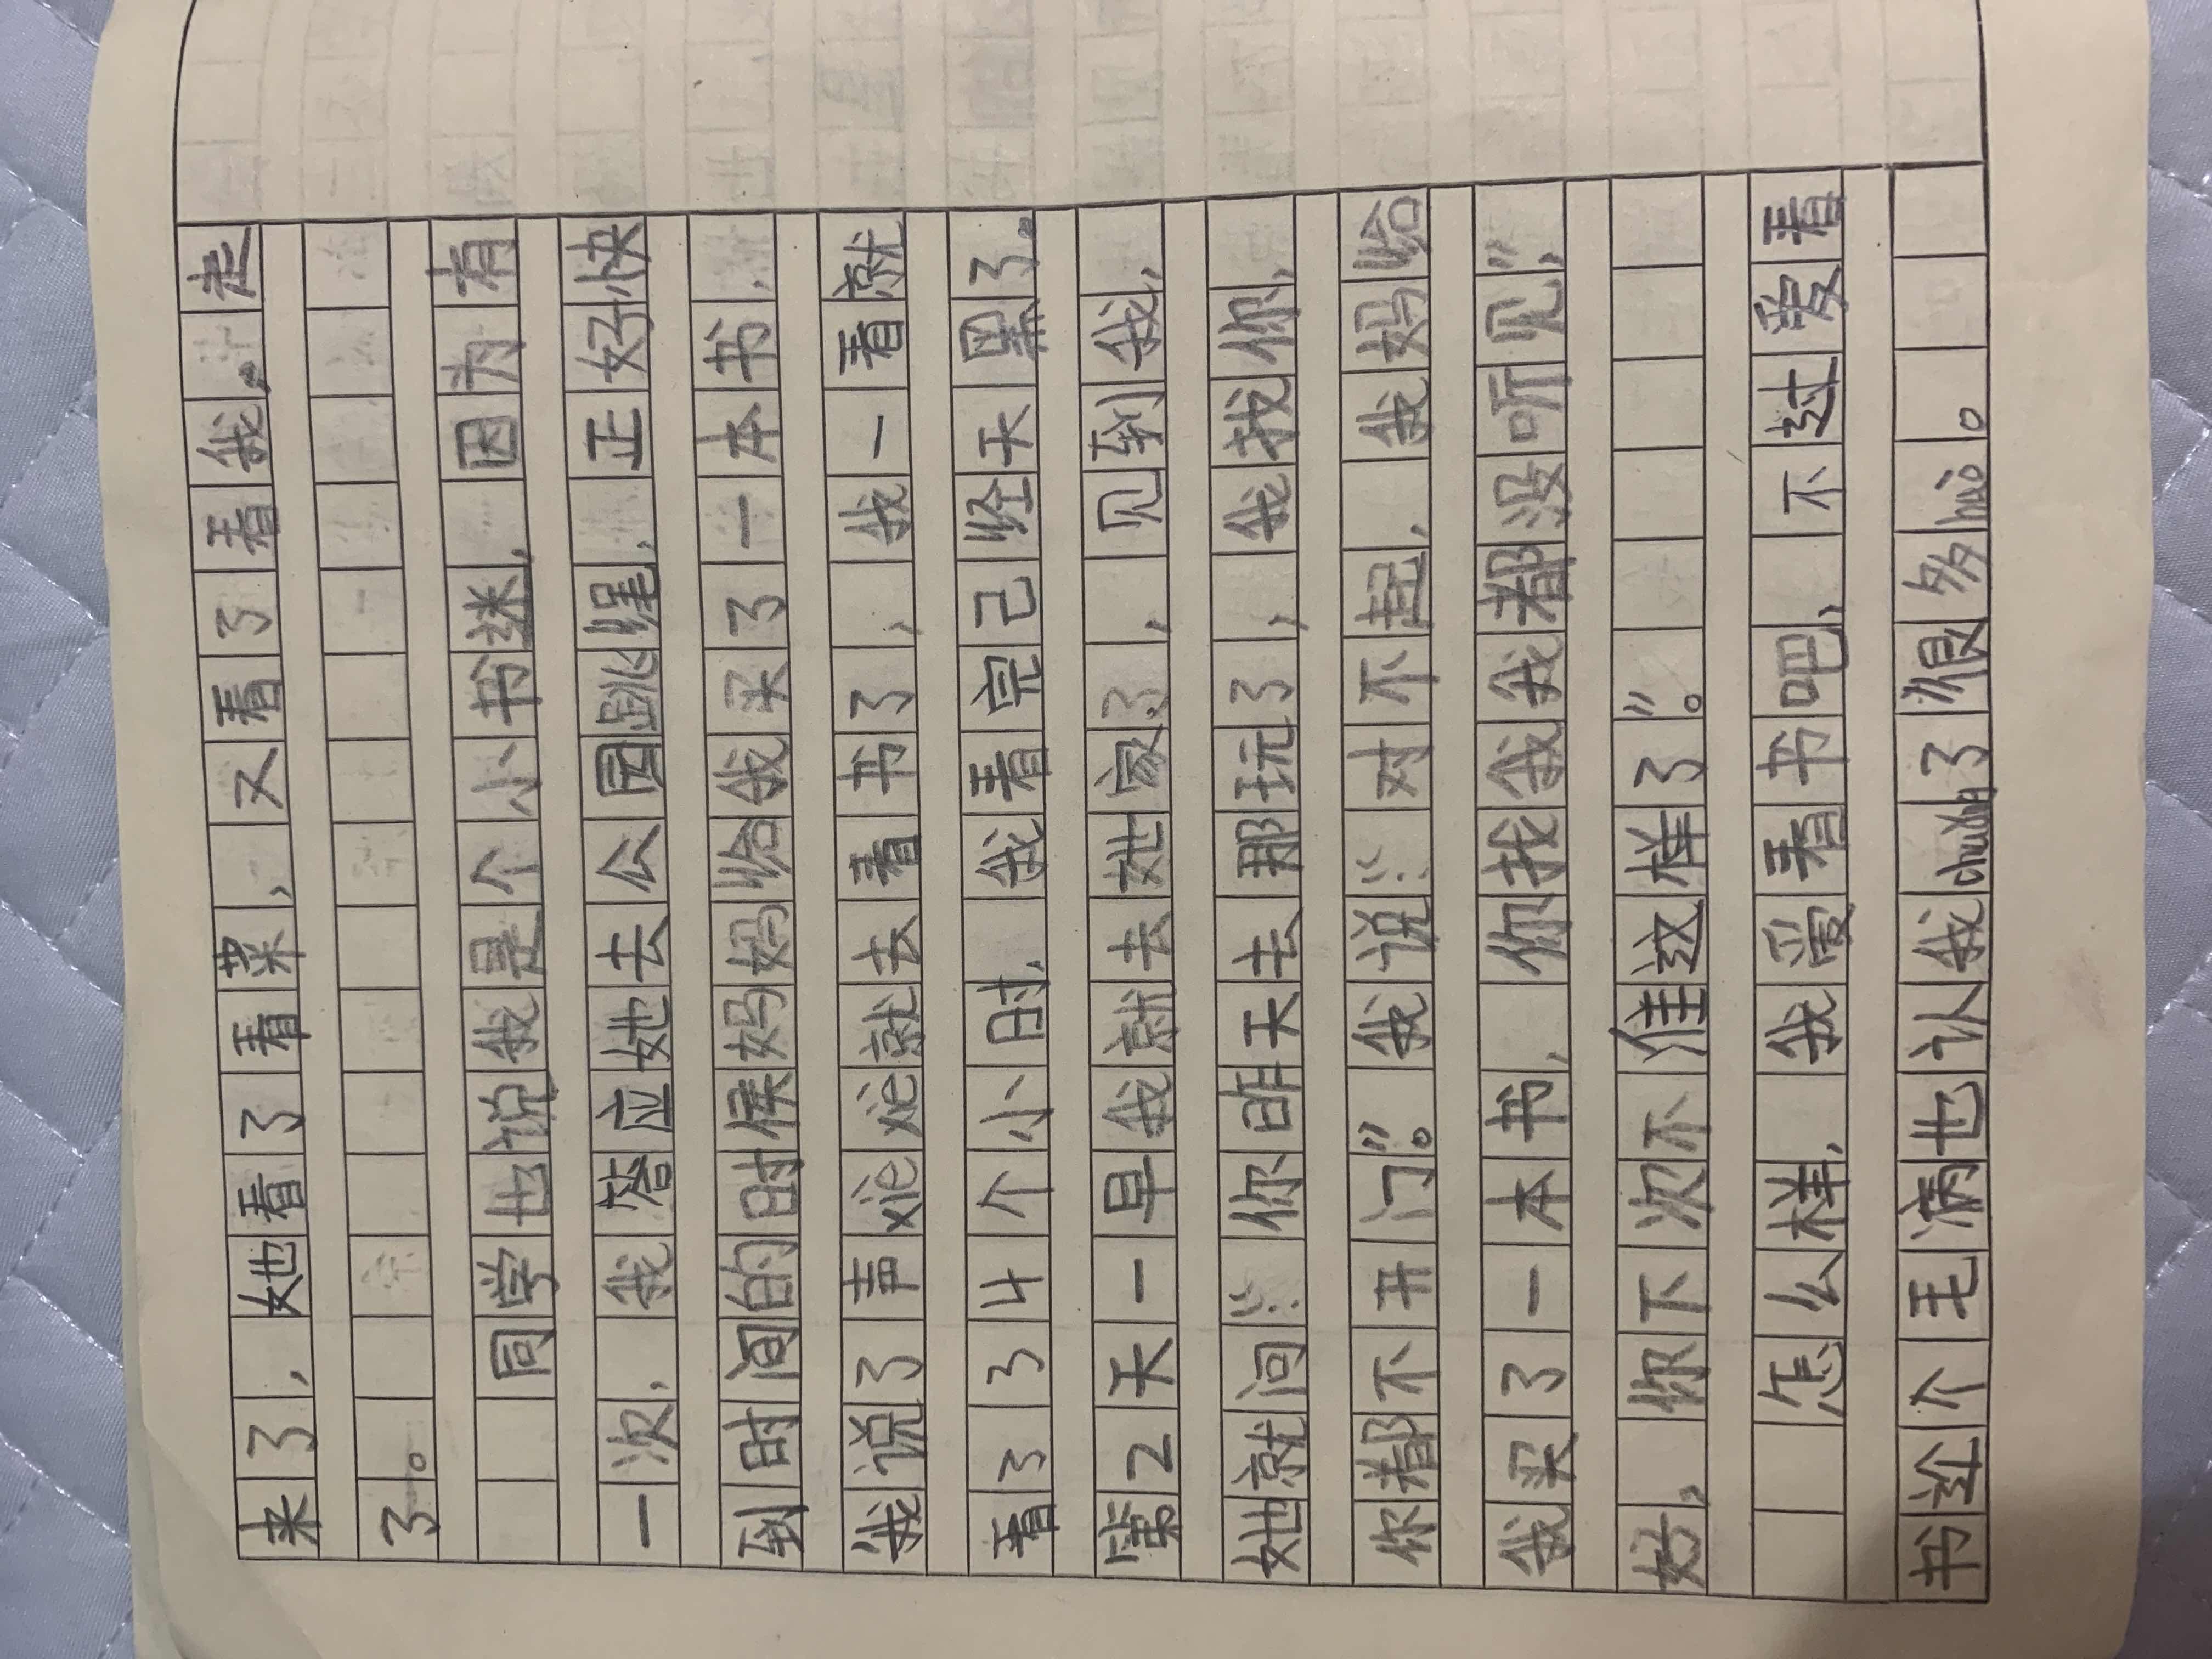 来了，她看了看菜，又看了看我。走
了。
同学也说我是个小书迷，因为有
一次，我答应她去公园跳绳，正好快
到时间的时候妈妈给我买了一本书，
我说了声xièxiè就去看书了，我一看就
看3 3 4个小时，我看完已经天黑了。
第2天一早我就去她家了，见到我，
她就问：“你昨天去那玩了，我找你，
你都不开门”。我说：“对不起，我妈给
我买了一本书，你找我我我都没听见”，
好，你下次不准这样了”。
怎么样，我爱看书吧，不过爱看
书这个毛病也认我chuǎng了很多huò。